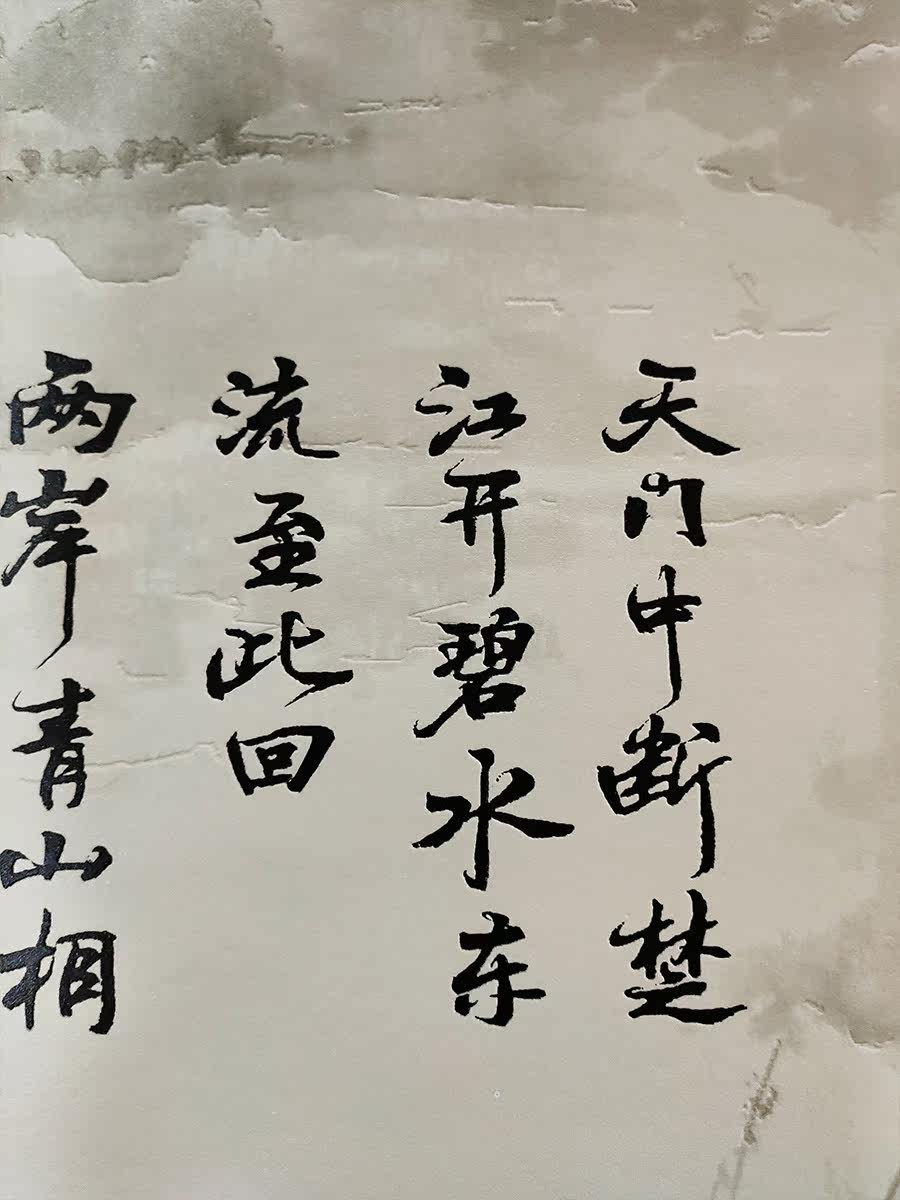 天门中断楚
江开碧水东
流至此回
两岸青山相